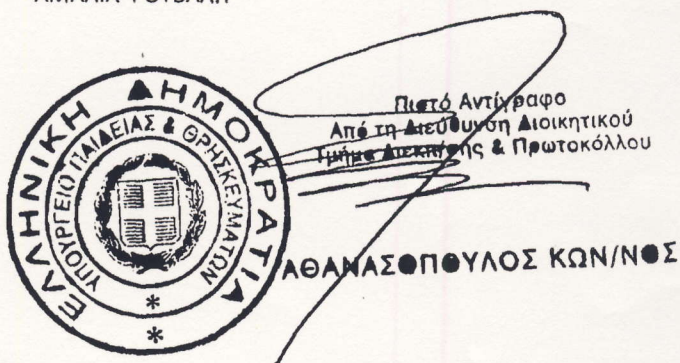 ΕΛΛΗΝΙΚΗ ΔΗΜΟΚΡΑΤΙΑ
ΥΠΟΥΡΓΕΙΟ ΠΑΙΔΕΙΑΣ & ΘΡΗΣΚΕΥΜΑΤΩΝ
* *
Πιστό Αντίγραφο
Από τη Διεύθυνση Διοικητικού
Τμήμα Διεκπ/σης & Πρωτοκόλλου
ΑΘΑΝΑΣΟΠΟΥΛΟΣ ΚΩΝ/ΝΟΣ